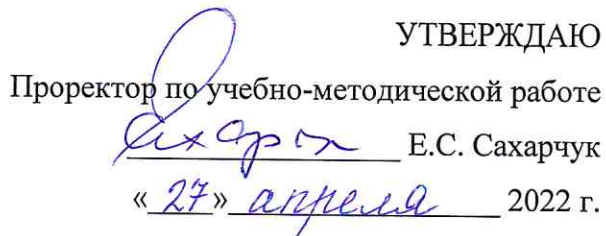 УТВЕРЖДАЮ
Проректор по учебно-методической работе
Е.С. Сахарчук
«27» апреля 2022 г.